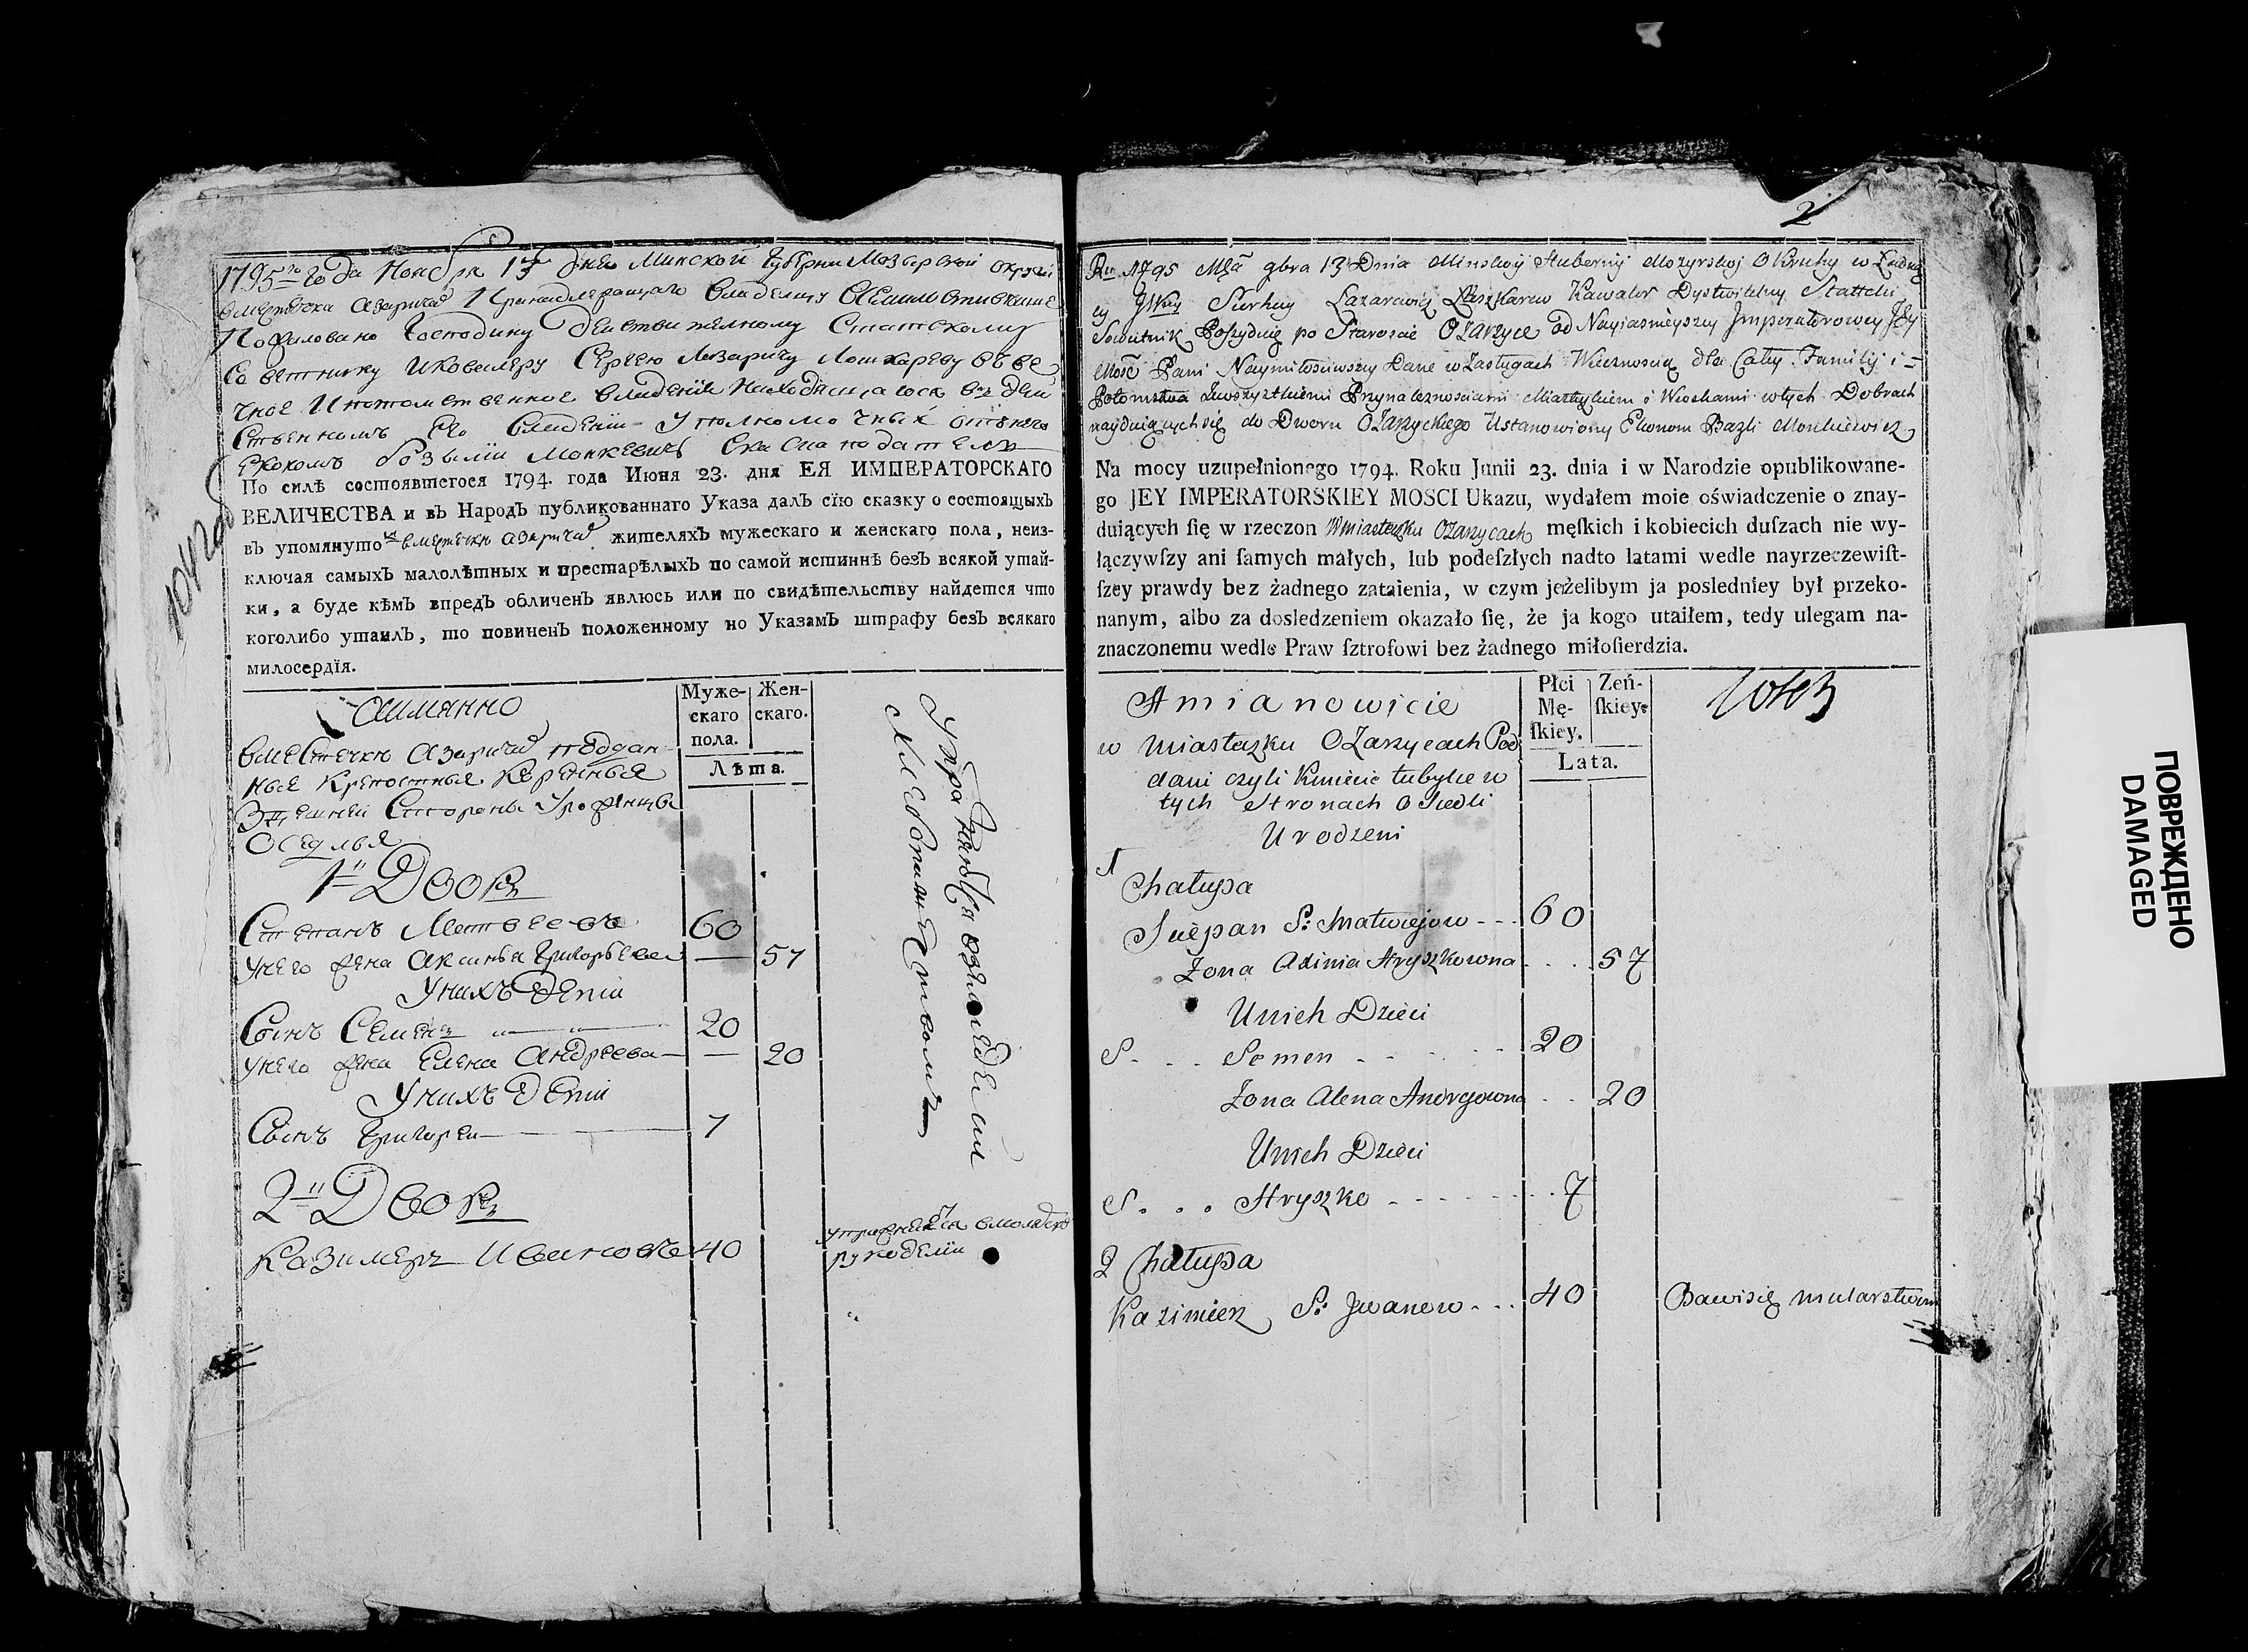 1795го года Ноября 13 дня Минской Губерни Мозырской округи
вместечка азаричах Принадлежащаго владению
Пожаловано Господину Действителному Статскому
Советнику Икавалеру Сергею Лазаричу Лошкареву въве
чное Ипотомственное владение
Ственномъ Его владении Уполномочных
Економъ Базылии Монкевичъ
По силѣ состоявшегося 1794. года Июня 23. дня ЕЯ ИМПЕРАТОРСКАГО
ВЕЛИЧЕСТВА и въ Народъ публикованнаго Указа далъ сїю сказку о состоящыхъ
въ упомянуто вместечке азаричах жителяхъ мужескаго и женскаго пола, неиз-
ключая самыхъ малолѣтныхъ и престарѣлыхъ по самой истиннѣ безъ всякой утай-
ки, а буде кѣмъ впредъ обличенъ явлюсь или по свидѣтельству найдется что
коголибо утаилъ, то повиненъ положенному но Указамъ штрафу безъ всякаго
милосердїя.
аимянно
Муже-
скаго
пола.
Жен-
скаго.
Лѣта.
вместечке азаричах поддан
ные крепостные коренные
здешней Стороны Уроженцы
Оседлыя
1й Дворъ
Степанъ Матвеевъ 60
унего жена аксинья Григорьева — 57
Унихъ Дети
Сынъ Семенъ 20
унего жена Елена Андреева — 20
Унихъ Дети
Сынъ Григореи 7
2й Дворъ
Казимеръ Ивановъ 40
рукоделии
хлебопашеством
2
Ru 1795 Mca 9bra 13 Dnia Minskiy Hubernij Mozyrskoj Okruhy w
Sierhiey Lazarewicz Łaszkarew Kawaler Dystwitelny Statski
Sowietnik Possyduię po Staroscie Ozarzyce od Nayiasnieyszey Jmperatorowey Jey
Mośc Pani Naymiłościwszey Dane w Zasługach Wiecznoscią dla Całey Familij i =
Potomstwa Zwszystkiemi Przynależnosciami Miasteczkiem i Wioskami wtych Dobrach
nayduiących się do Dworu Ozarzyckiego Ustanowiony Ekonom Bazli Monkiewicz
Na mocy uzupełnionego 1794. Roku Junii 23. dnia i w Narodzie opublikowane-
go JEY IMPERATORSKIEY MOSCI Ukazu, wydałem moie oświadczenie o znay-
duiących ſię w rzeczon Wmiasteczku Ozarzycach męſkich i kobiecich duſzach nie wy-
łączywſzy ani ſamych małych, lub podeſzłych nadto latami wedle nayrzeczewiſt-
ſzey prawdy bez żadnego zataienia, w czym jeżelibym ja posledniey był przeko-
nanym, albo za dosledzeniem okazało ſię, że ja kogo utaiłem, tedy ulegam na-
znaczonemu wedle Praw ſztrofowi bez żadnego miłoſierdzia.
Amianowicie
Płci
Mę-
ſkiey.
Zeń-
ſkiey.
Lata.
w Miasteczku Ozarzycach Pod
dani czyli Kmiecie tubylce w
tych Stronach Osiedli
Urodzeni
1 Chałupa
Sciepan S: Matwiejow 60
Zona Axinia Hryszkowna 57
Unich Dzieci
S. Semen 20
Zona Alena Andrejowna 20
Unich Dzieci
S. Hryszko 7
2 Chałupa
Kazimierz S: Jwanow 40 Bawisię mularstwem
ПОВРЕЖДЕНО
DAMAGED